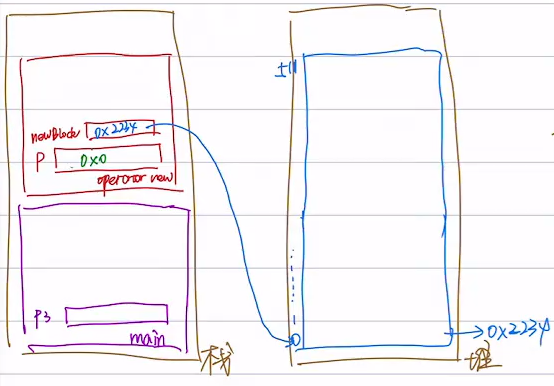 newBlock 0x2234
P 0x0
operator new
P3
main
栈
±111
0
0x2234
堆